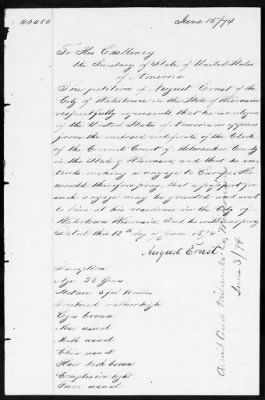 40450
June 15/74
To His Excellency
the Secretary of State of United States
of America
The petition of August Ernst of the
City of Watertown in the State of Wisconsin
respectfully represents that he is a citizen
of the United States of America as appears
from the enclosed certificate of the Clerk
of the Circuit Court of Milwaukee County
in the State of Wisconsin, and that he in-
tends making a voyage to Europe. He
would therefore pray, that a passport for
such voyage may be granted and sent
to him at his residence in the City of
Watertown Wisconsin. And he will ever pray
Dated this 12th day of June 1874.
August Ernst
Description
Age 33 Years
Stature 5 feet
Forehead rather high
Eyes brown
Nose usual
Mouth usual
Chin usual
Hair dark brown
Complexion light
Face usual
August Ernst
June 3/74